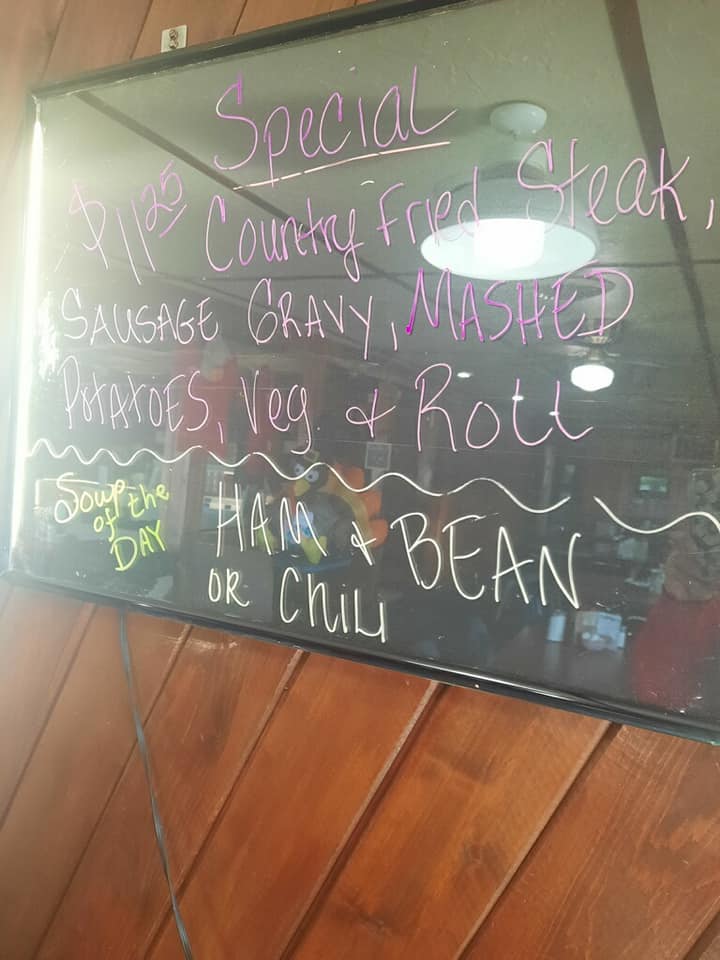 Special
$11.25 Country Fried Steak,
SAUSAGE GRAVY, MASHED
POTATOES, Veg & Roll
Soup of the DAY
HAM & BEAN
OR Chili